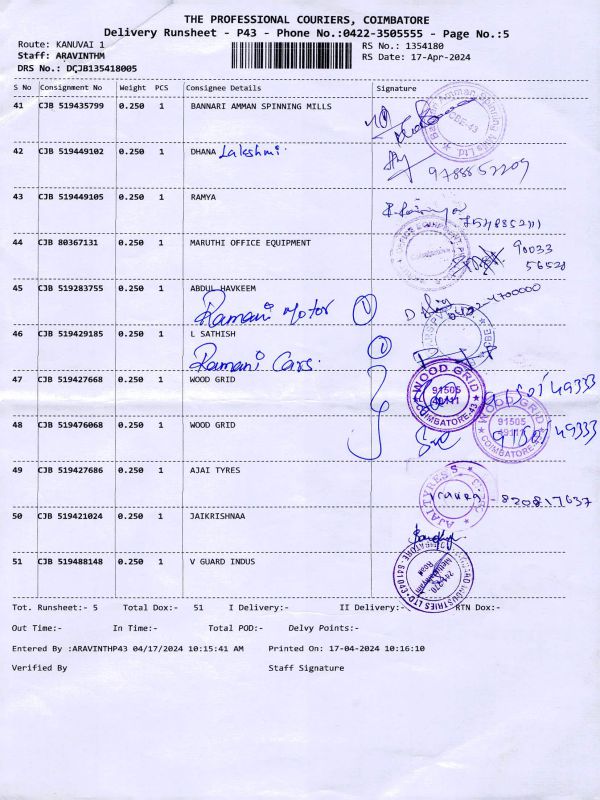 THE PROFESSIONAL COURIERS, COIMBATORE
Delivery Runsheet - P43 - Phone No.:0422-3505555 - Page No.:5
Route: KANUVAI 1
RS No.: 1354180
Staff: ARAVINTHM
RS Date: 17-Apr-2024
DRS No.: DCJB135418005
S No Consignment No Weight PCS Consignee Details Signature
41 CJB 519435799 0.250 1 BANNARI AMMAN SPINNING MILLS
42 CJB 519449102 0.250 1 DHANA Lakshmi
9788852209
43 CJB 519449105 0.250 1 RAMYA
44 CJB 80367131 0.250 1 MARUTHI OFFICE EQUIPMENT
90033
56528
45 CJB 519283755 0.250 1 ABDUL HAVKEEM
Ramani Motor 1
46 CJB 519429185 0.250 1 L SATHISH
Ramani Cars. 1
47 CJB 519427668 0.250 1 WOOD GRID
WOOD GRID 91505 COIMBATORE-43
48 CJB 519476068 0.250 1 WOOD GRID
WOOD GRID 91505 49111 COIMBATORE-43
49 CJB 519427686 0.250 1 AJAI TYRES
AJAI TYRES
50 CJB 519421024 0.250 1 JAIKRISHNAA
51 CJB 519488148 0.250 1 V GUARD INDUS
Tot. Runsheet:- 5 Total Dox:- 51 I Delivery:- II Delivery:- RTN Dox:-
Out Time:- In Time:- Total POD:- Delvy Points:-
Entered By :ARAVINTHP43 04/17/2024 10:15:41 AM Printed On: 17-04-2024 10:16:10
Verified By Staff Signature